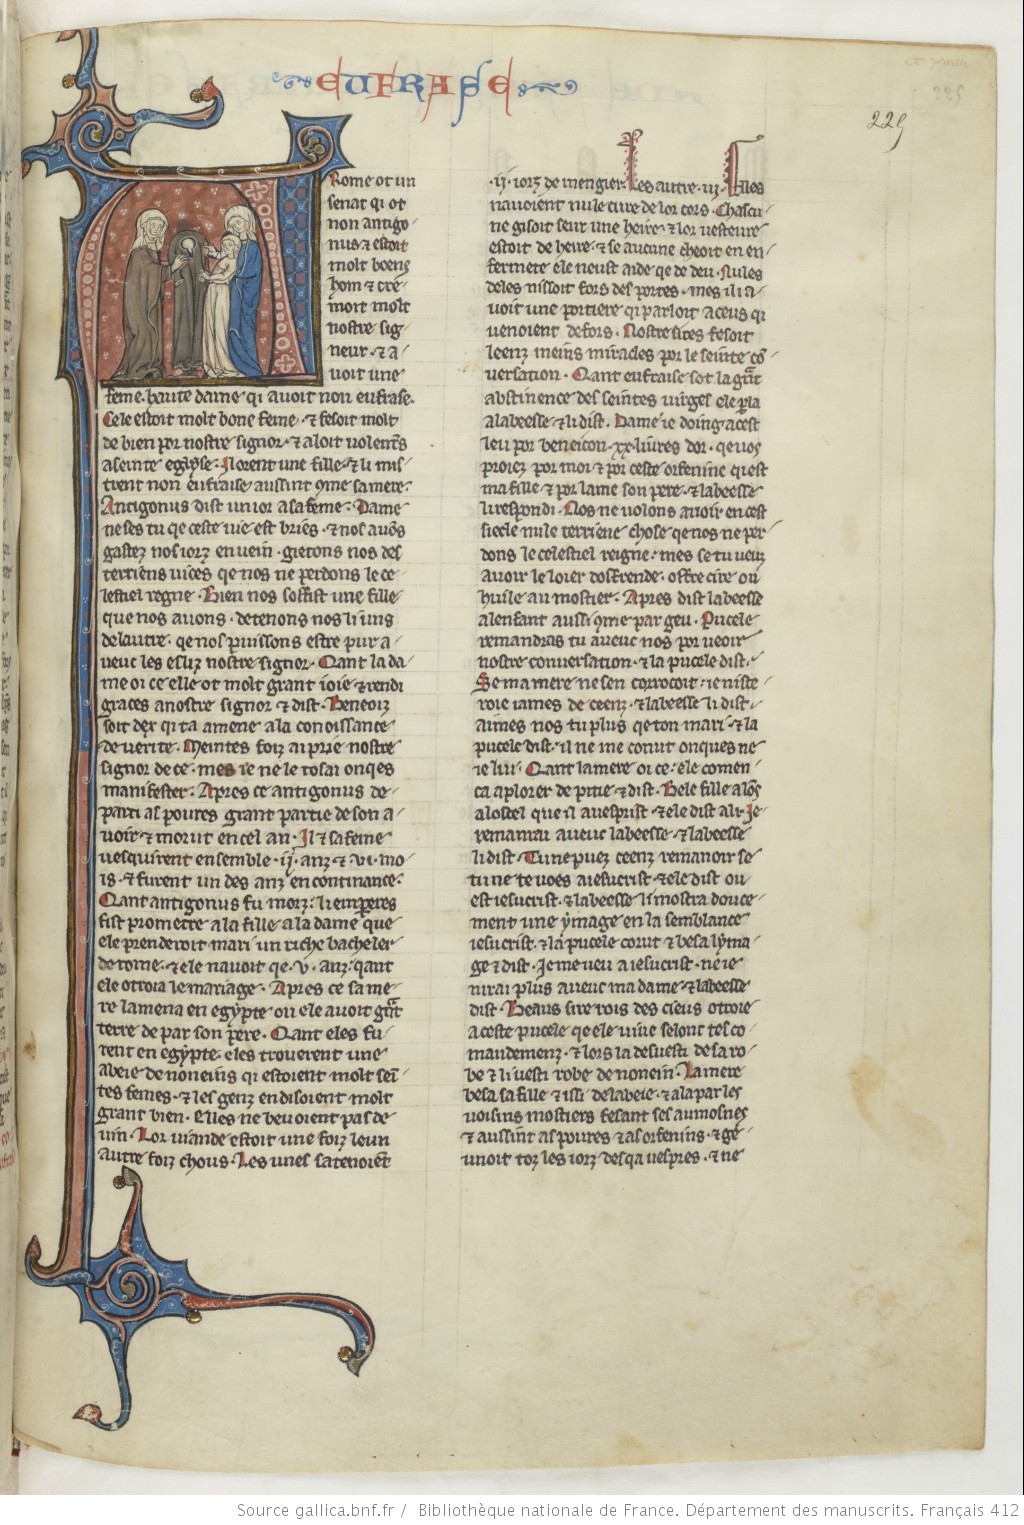 EUFRASE
225
225
A Rome ot un
senat qi ot
non antigo
nus ⁊ estoit
molt boens
hom ⁊ cre
moit molt
nostre sig
neur ⁊ a
voit une
feme haute dame qi avoit non eufrase.
Cele estoit molt bone feme ⁊ fesoit molt
de bien por nostre signor ⁊ aloit volent̃s
a seinte eglyse. Il orent une fille ⁊ li mis
trent non eufraise aussint cͫme sa mere.
Antigonus dist un ior a sa feme. Dame
ne ses tu qe ceste vie est briés ⁊ nos avõs
gastez nos iorz en vein. gietons nos des
terriens vices qe nos ne perdons le ce
lestiel regne. Bien nos soffist une fille
que nos avons. detenons nos li uns
de lautre. qe nos puissons estre pur a
veuc les esliz nostre signor. Qant la da
me oi ce elle ot molt grant ioie ⁊ rendi
graces a nostre signor ⁊ dist. Beneoiz
soit dex qi ta amene a la conoissance
de verite. Meintes foiz ai prie nostre
signor de ce. mes ie ne le tosai onqes
manifester. Apres ce antigonus de
parti as povres grant partie de son a
voir ⁊ morut en cel an. Il ⁊ sa feme
vesquirent ensemble .ij. anz ⁊ .vi. mo
is. ⁊ furent un des anz en continance.
Qant antigonus fu morz. li emperes
fist prometre a la fille a la dame que
ele prenderoit mari un riche bacheler
de rome. ⁊ ele navoit qe .v. anz. qant
ele otroia le mariage. Apres ce sa me
re lamena en egypte ou ele avoit gr̃t
terre de par son pere. Qant eles fu
rent en egypte. eles troverent une
abeie de noneins qi estoient molt sein
tes femes. ⁊ les genz en disoient molt
grant bien. Elles ne bevoient pas de
vin. Lor viande estoit une foiz leun
autre foiz chous. Les unes satenoient
.ij. iorz de mengier. Les autre .iij. Elles
navoient nule cure de lor cors. Chascu
ne gisoit seur une heire ⁊ lor vesteure
estoit de heire. ⁊ se aucune cheoit en en
fermete ele neust aide qe de deu. Nules
deles nissoit fors des portes. mes il i a
voit une portiere qi parloit a ceus qi
venoient defors. Nostre sires fesoit
leenz meins miracles por le seinte cõ
versation. Qant eufraise sot la gr̃t
abstinence des seintes virges ele p̃la
a labeesse ⁊ li dist. Dame ie doing a cest
leu por beneicon .xx. livres dor. qe vos
proiez por moi ⁊ por ceste orfenine qi est
ma fille ⁊ por lame son pere. ⁊ labeesse
li respondi. Nos ne volons avoir en cest
siecle nule terriene chose qe nos ne per
dons le celestiel reigne. mes se tu veuz
avoir le loier dosfrende. osfre cire ou
huile au mostier. Apres dist labeesse
a lenfant aussi cͫme par geu. Pucele
remandras tu aveuc nos por veoir
nostre conversation. ⁊ la pucele dist.
Se ma mere ne sen corrocoit. ie niste
roie iames de ceenz. ⁊ labeesse li dist.
aimes nos tu plus qe ton mari. ⁊ la
pucele dist. il ne me conut onques ne
ie lui. Qant la mere oi ce. ele comen
ca a plorer de pitie ⁊ dist. Bele fille alõs
a lostel que il avesprist. ⁊ ele dist alr̃. Je
remanrai aveuc labeesse. ⁊ labeesse
li dist. Tu ne puez ceenz remanoir se
tu ne te voes a iesucrist. ⁊ ele dist ou
est iesucrist. ⁊ labeesse li mostra douce
ment une ymage en la semblance
iesucrist. ⁊ la pucele corut ⁊ besa lyma
ge ⁊ dist. Je me veu a iesucrist. ne ie
nirai plus aveuc ma dame. ⁊ labeesse
dist. Beaus sire rois des cieus otroie
a ceste pucele qe ele vive selont tes co
mandemenz. ⁊ lors la desvesti de sa ro
be ⁊ li vesti robe de nonein. La mere
besa sa fille ⁊ issi de labeie. ⁊ ala par les
voisins mostiers fesant ses aumosnes
⁊ aussint as povres ⁊ as orfenins. ⁊ ge
unoit toz les iorz desqa vespres. ⁊ ne
Source gallica.bnf.fr / Bibliothèque nationale de France. Département des manuscrits. Français 412